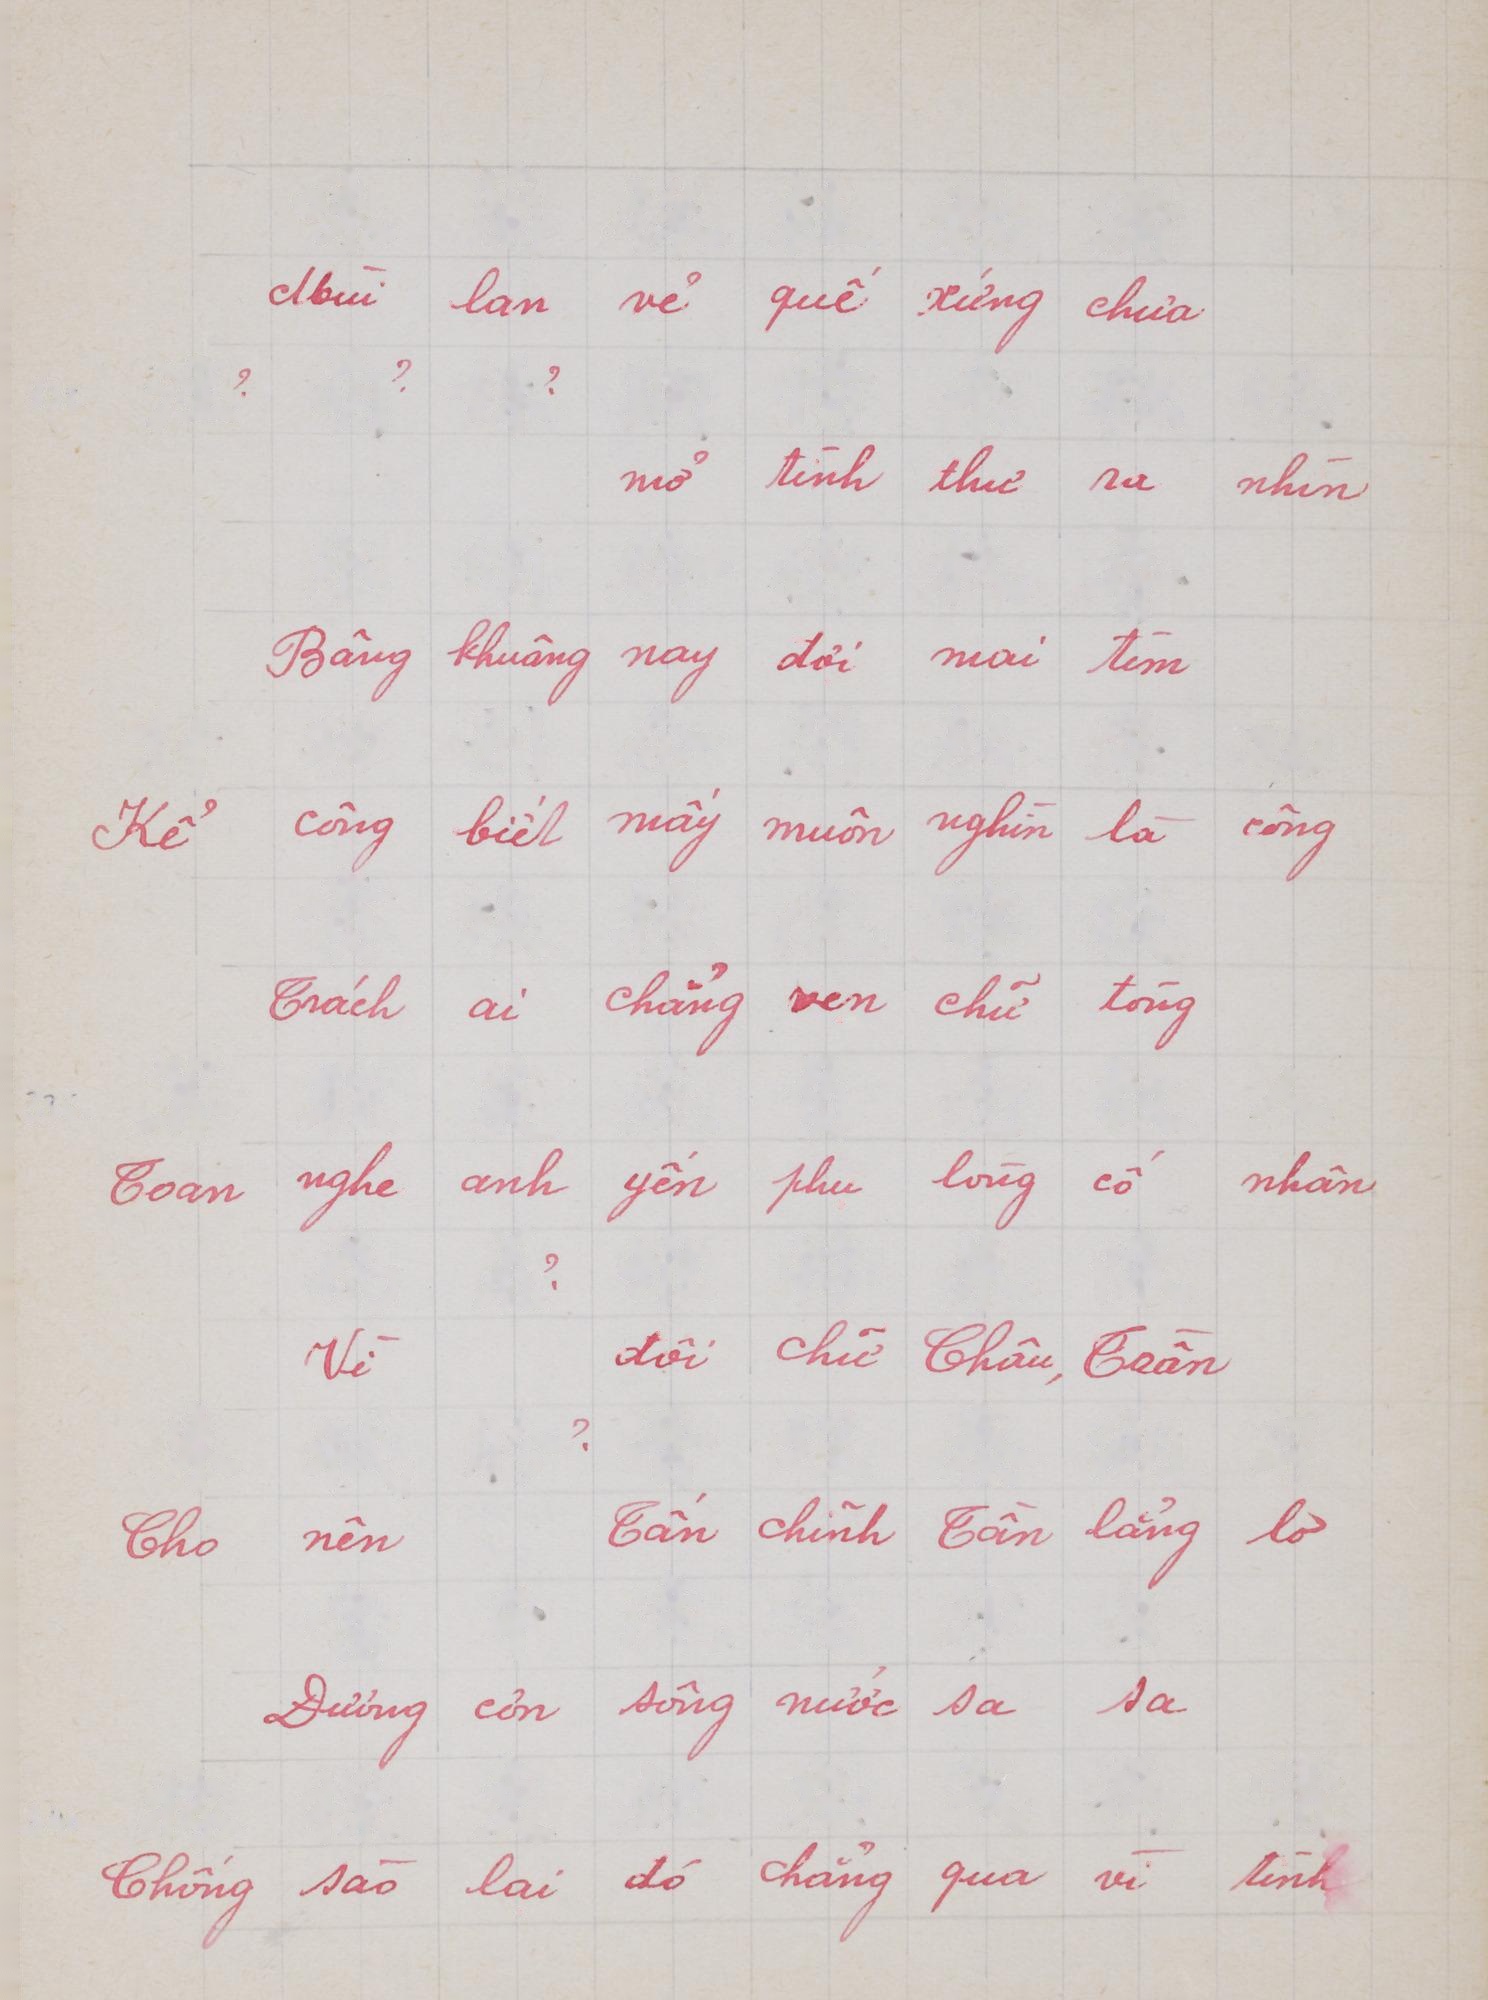 Mùi lan vẻ quế xứng chưa
? ? ?
mở tình thư ra nhìn
Bâng khuâng nay đợi mai tìm
Kể công biết mấy muôn nghìn là công
Trách ai chẳng vẹn chữ tòng
Toan nghe anh yến phụ lòng cố nhân
?
Vì đôi chữ Châu, Trần
?
Cho nên Tấn chỉnh Tần lẳng lơ
Đường còn sông nước sa sa
Chống sào lại đó chẳng qua vì tình